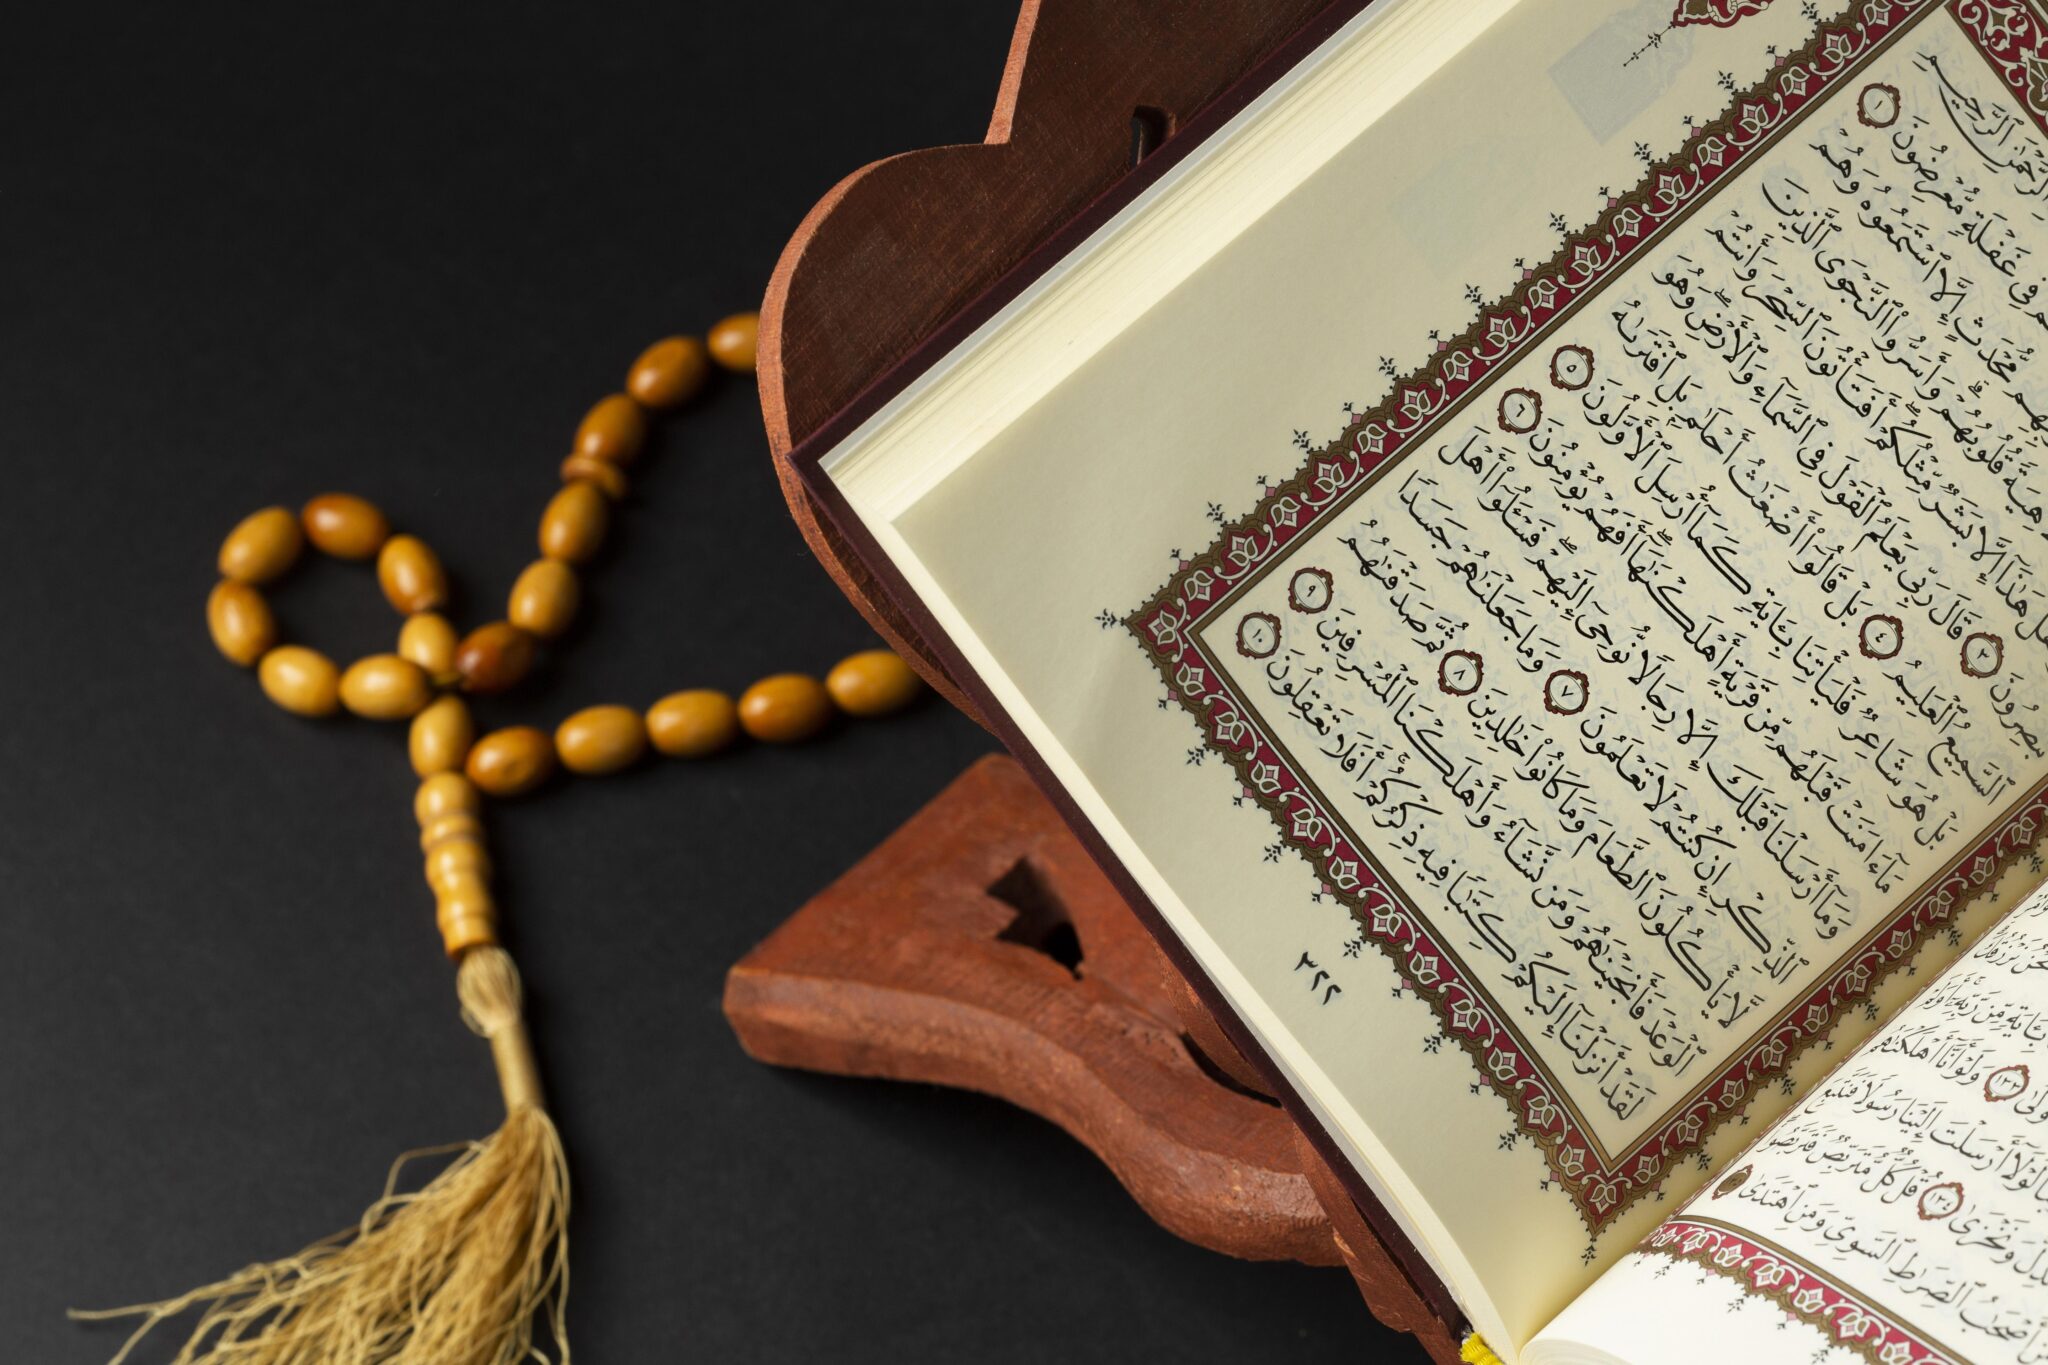 ٱلرَّحْمَٰنِ ٱلرَّحِيمِ
فِي غَفْلَةٍ مُّعْرِضُونَ ١
مُّحْدَثٍ إِلَّا ٱسْتَمَعُوهُ وَهُمْ
قُلُوبُهُمْ وَأَسَرُّوا۟ ٱلنَّجْوَى ٱلَّذِينَ
هَلْ هَٰذَآ إِلَّا بَشَرٌ مِّثْلُكُمْ أَفَتَأْتُونَ ٱلسِّحْرَ وَأَنتُمْ
تُبْصِرُونَ ٣ قَالَ رَبِّي يَعْلَمُ ٱلْقَوْلَ فِي ٱلسَّمَآءِ وَٱلْأَرْضِ وَهُوَ
ٱلسَّمِيعُ ٱلْعَلِيمُ ٤ بَلْ قَالُوٓا۟ أَضْغَٰثُ أَحْلَٰمٍ بَلِ ٱفْتَرَىٰهُ
بَلْ هُوَ شَاعِرٌ فَلْيَأْتِنَا بِـَٔايَةٍ كَمَآ أُرْسِلَ ٱلْأَوَّلُونَ ٥
مَآ ءَامَنَتْ قَبْلَهُم مِّن قَرْيَةٍ أَهْلَكْنَٰهَآ أَفَهُمْ يُؤْمِنُونَ ٦
وَمَآ أَرْسَلْنَا قَبْلَكَ إِلَّا رِجَالًا نُّوحِيٓ إِلَيْهِمْ فَسْـَٔلُوٓا۟ أَهْلَ
ٱلذِّكْرِ إِن كُنتُمْ لَا تَعْلَمُونَ ٧ وَمَا جَعَلْنَٰهُمْ جَسَدًا
لَّا يَأْكُلُونَ ٱلطَّعَامَ وَمَا كَانُوا۟ خَٰلِدِينَ ٨ ثُمَّ صَدَقْنَٰهُمُ
ٱلْوَعْدَ فَأَنجَيْنَٰهُمْ وَمَن نَّشَآءُ وَأَهْلَكْنَا ٱلْمُسْرِفِينَ ٩
لَقَدْ أَنزَلْنَآ إِلَيْكُمْ كِتَٰبًا فِيهِ ذِكْرُكُمْ أَفَلَا تَعْقِلُونَ ١٠
٣٢٢
نَحْنُ نَرْزُقُكَ
بِـَٔايَةٍ مِّن رَّبِّهِۦٓ أَوَلَمْ
١٣٣ وَلَوْ أَنَّآ أَهْلَكْنَٰهُم
لَوْلَآ أَرْسَلْتَ إِلَيْنَا رَسُولًا فَنَتَّبِعَ
وَنَخْزَىٰ ١٣٤ قُلْ كُلٌّ مُّتَرَبِّصٌ فَتَرَبَّصُوا۟
أَصْحَٰبُ ٱلصِّرَٰطِ ٱلسَّوِيِّ وَمَنِ ٱهْتَدَىٰ